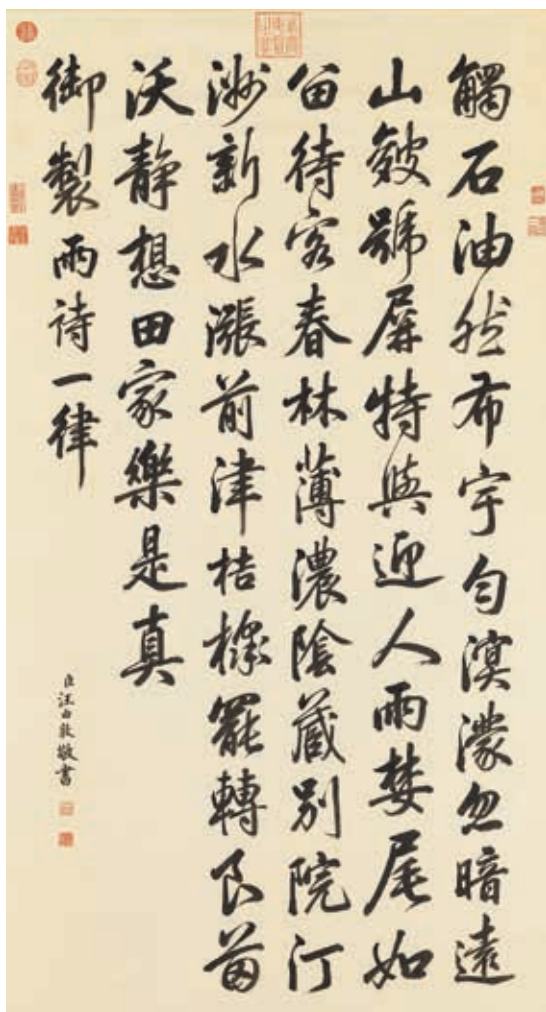 觸石油然布宇勻溟濛忽暗遠
山皴號屏特與迎人雨婪尾如
留待客春林薄濃陰藏別院汀
洲新水漲前津桔橰罷轉良苗
沃靜想田家樂是真
御製雨詩一律
臣汪由敦敬書